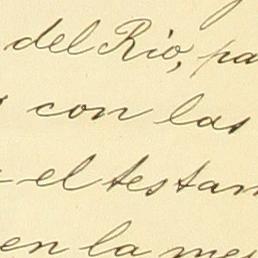 del Rio, pa
con las
el testam
en la me